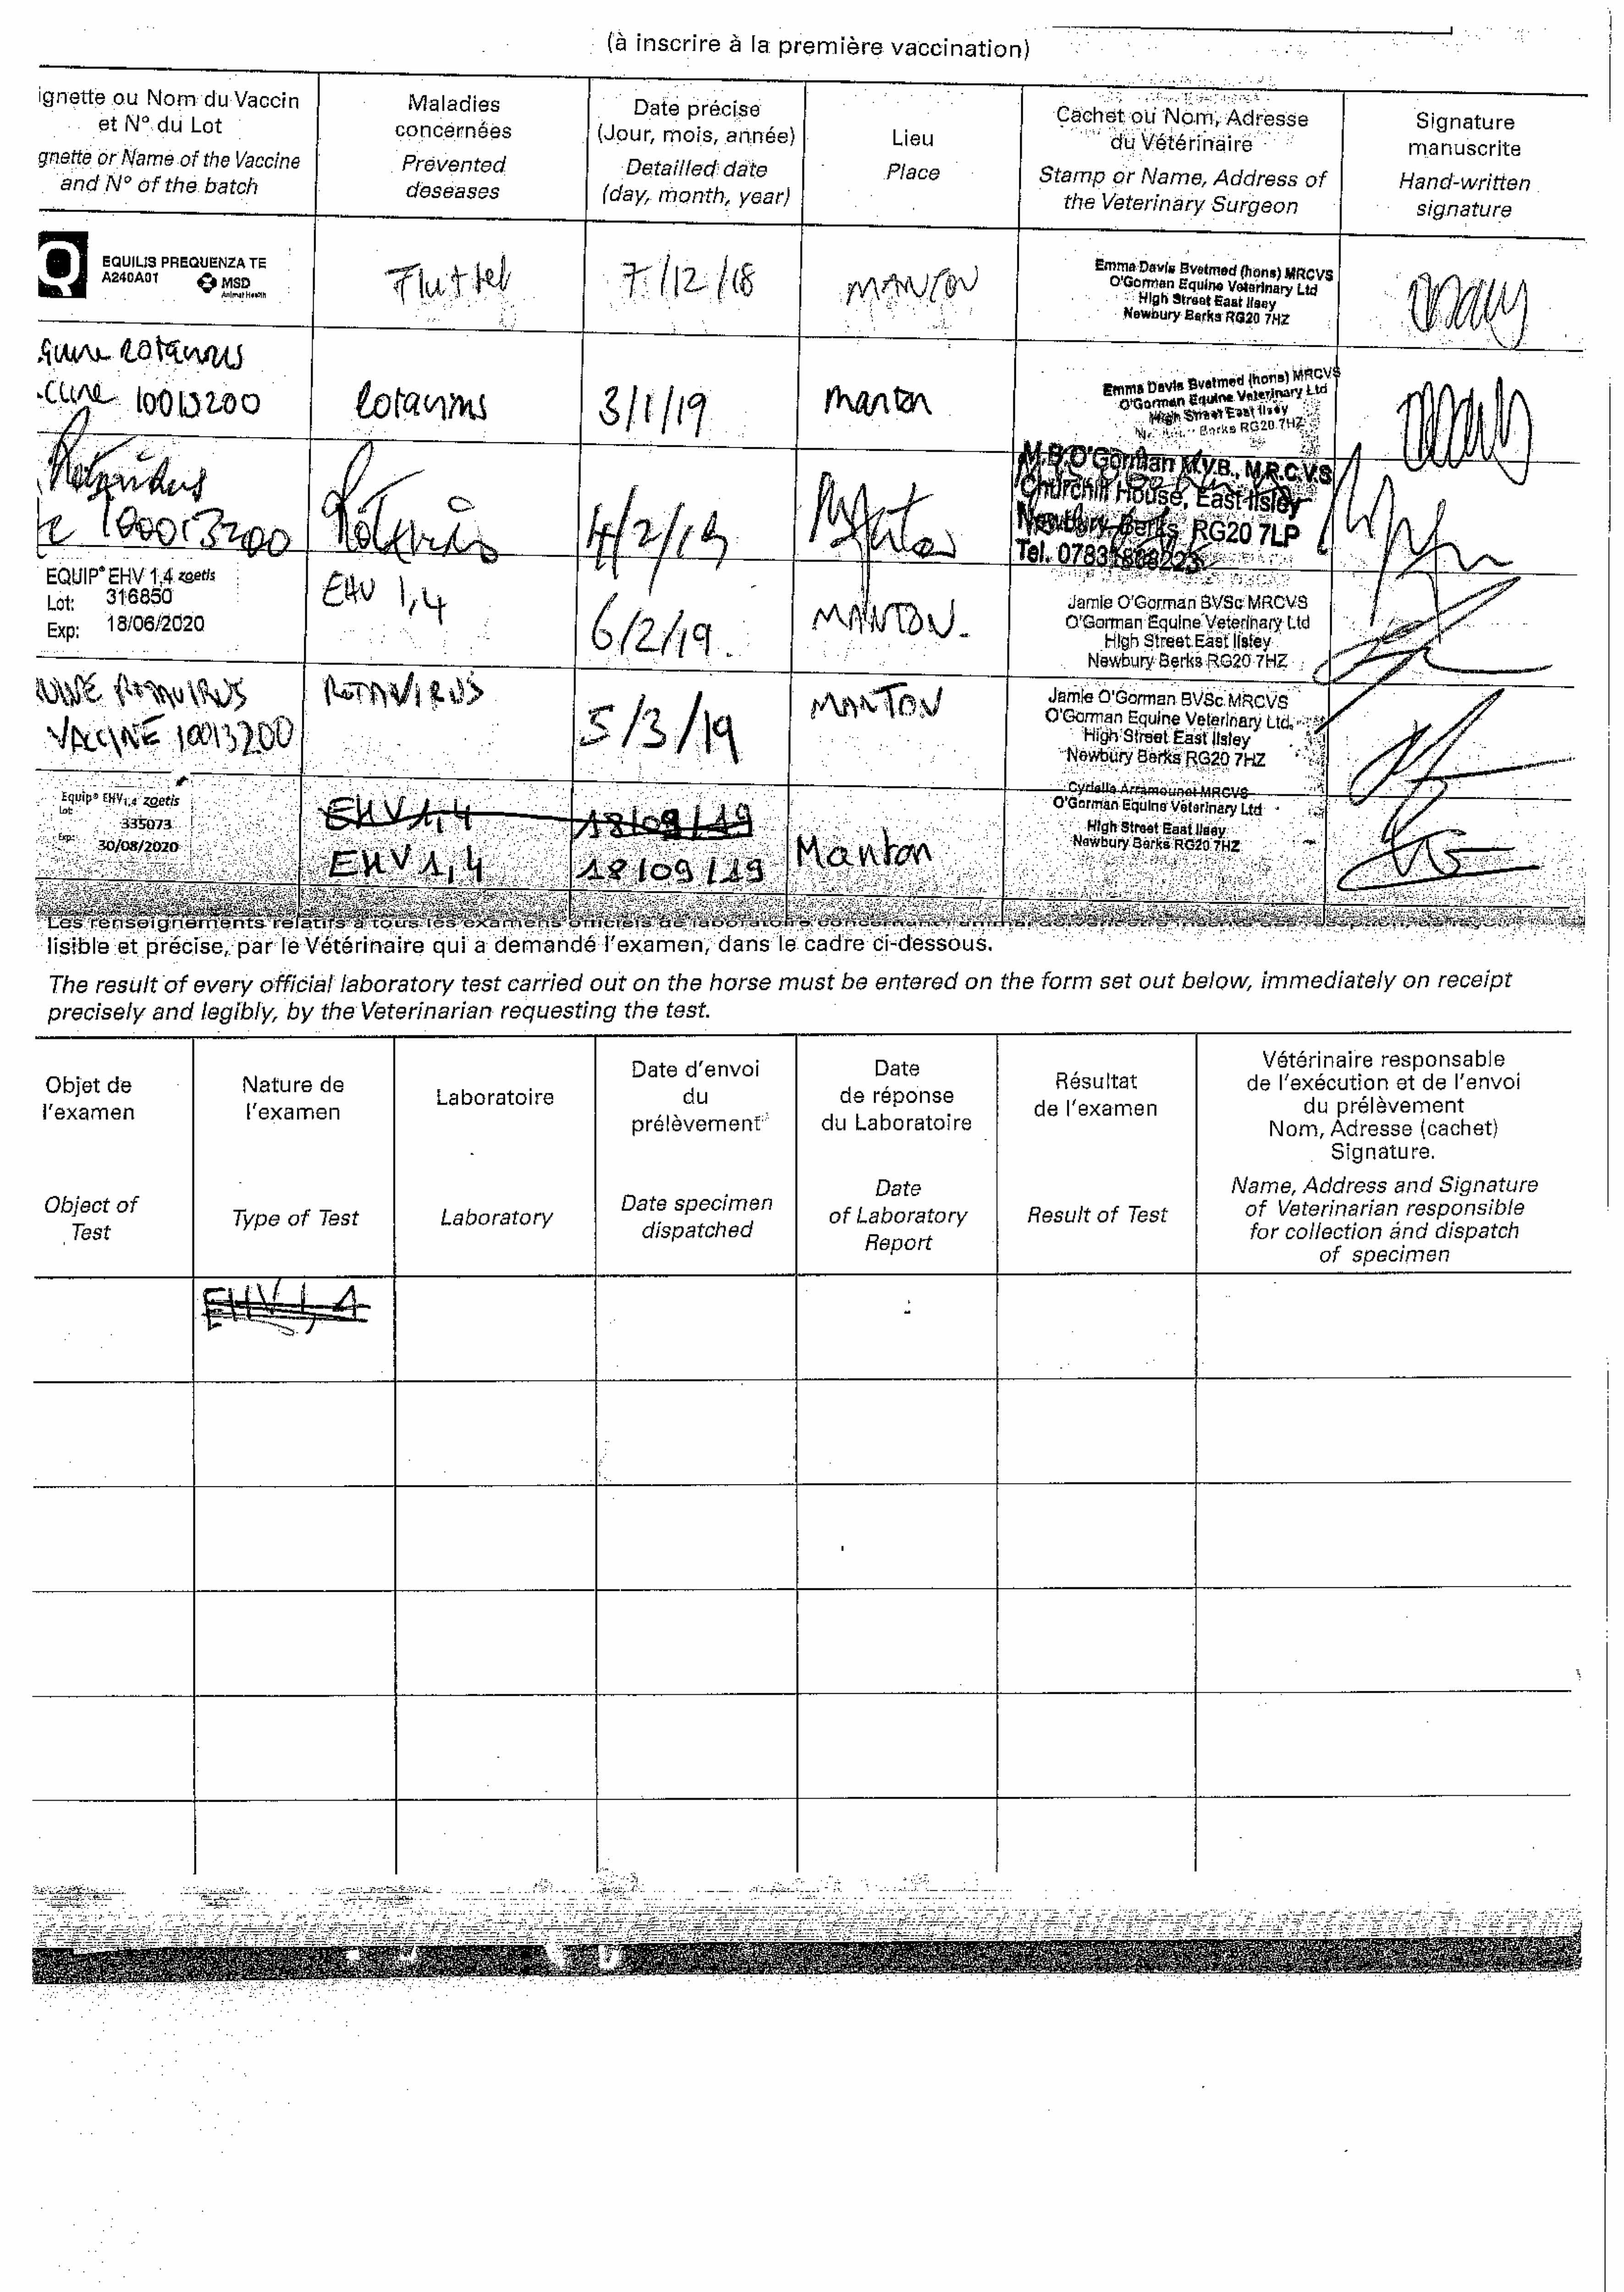 (à inscrire à la première vaccination)
ignette ou Nom du Vaccin
et N° du Lot
gnette or Name of the Vaccine
and N° of the batch
Maladies
concernées
Prevented
deseases
Date précise
(Jour, mois, année)
Detailled date
(day, month, year)
Lieu
Place
Cachet ou Nom, Adresse
du Vétérinaire
Stamp or Name, Address of
the Veterinary Surgeon
Signature
manuscrite
Hand-written
signature
EQUILIS PREQUENZA TE
A240A01
MSD
Animal Health
Flu + tet
7/12/18
MANTON
Emma Davis Bvetmed (hons) MRCVS
O'Gorman Equine Veterinary Ltd
High Street East Ilsey
Newbury Berks RG20 7HZ
Rotavirus
10013200
Rotavirus
3/1/19
Manton
Emma Davis Bvetmed (hons) MRCVS
O'Gorman Equine Veterinary Ltd
High Street East Ilsey
Berks RG20 7HZ
Rotavirus
100013200
Rotavirus
4/2/19
Manton
M.B.O'Gorman M.V.B., M.R.C.V.S
Churchill House, East Ilsley
Newbury, Berks, RG20 7LP
Tel.
EQUIP® EHV 1,4 zoetis
Lot: 316850
Exp: 18/06/2020
EHV 1,4
6/2/19.
MANTON.
Jamie O'Gorman BVSc MRCVS
O'Gorman Equine Veterinary Ltd
High Street East Ilsley
Newbury Berks RG20 7HZ
ROTAVIRUS
VACCINE 10013200
ROTAVIRUS
5/3/19
MANTON
Jamie O'Gorman BVSc MRCVS
O'Gorman Equine Veterinary Ltd.
High Street East Ilsley
Newbury Berks RG20 7HZ
Equip® EHV1,4 zoetis
Lot: 335073
Exp: 30/08/2020
EHV 1,4
18/09/19
EHV 1,4
18/09/19
Manton
MRCVS
O'Gorman Equine Veterinary Ltd
High Street East Ilsey
Newbury Berks RG20 7HZ
Les renseignements relatifs à tous les examens officiels de laboratoire
lisible et précise, par le Vétérinaire qui a demandé l'examen, dans le cadre ci-dessous.
The result of every official laboratory test carried out on the horse must be entered on the form set out below, immediately on receipt
precisely and legibly, by the Veterinarian requesting the test.
Objet de
l'examen
Object of
Test
Nature de
l'examen
Type of Test
Laboratoire
Laboratory
Date d'envoi
du
prélèvement
Date specimen
dispatched
Date
de réponse
du Laboratoire
Date
of Laboratory
Report
Résultat
de l'examen
Result of Test
Vétérinaire responsable
de l'exécution et de l'envoi
du prélèvement
Nom, Adresse (cachet)
Signature.
Name, Address and Signature
of Veterinarian responsible
for collection and dispatch
of specimen
EHV 1,4